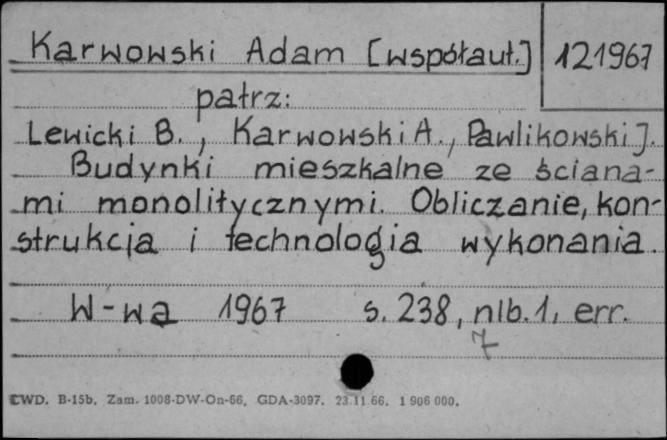 Karwowski Adam [współaut.] 121967
patrz:
Lewicki B., Karwowski A., Pawlikowski J.
Budynki mieszkalne ze ściana-
mi monolitycznymi. Obliczanie, kon-
strukcja i technologia wykonania.
W-wa 1967 s. 238, nlb. 1, err.
7
CWD. B-15b. Zam. 1008-DW-On-66. GDA-3097. 23.11.66. 1 906 000.